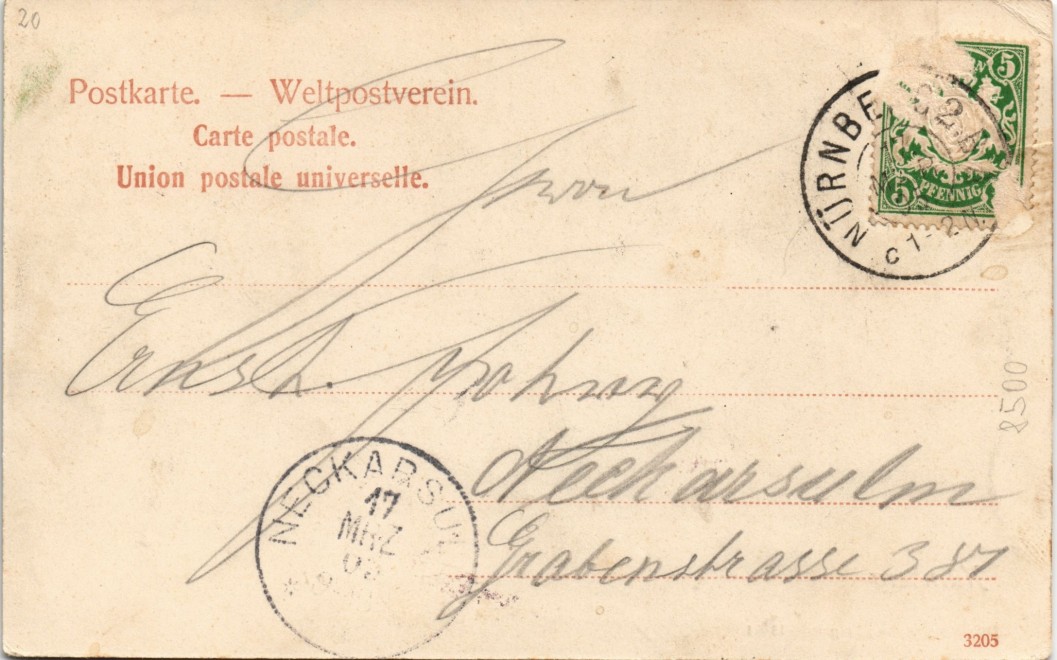 20
Postkarte. — Weltpostverein.
Carte postale.
Union postale universelle.
5
5
PFENNIG
NÜRNBE 2.
C 1-2
Herrn
Ernst
Neckarsulm
Grabenstrasse 387
NECKARSU
17
MRZ
03
8500
3205